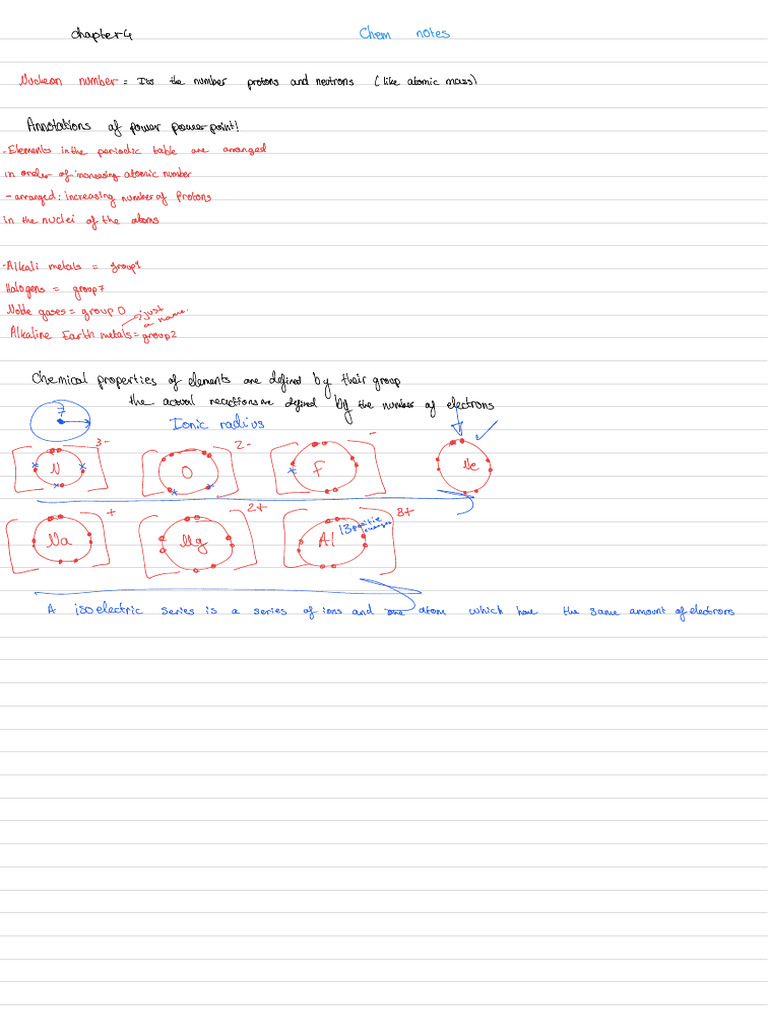 chapter 4 Chem notes
Nucleon number = Its the number protons and neutrons (like atomic mass)
Annotations of power powerpoint!
- Elements in the periodic table are arranged
in order of increasing atomic number
- arranged: increasing number of Protons
in the nuclei of the atoms
- Alkali metals = group 1
Halogens = group 7
Noble gases = group 0 just a name.
Alkaline Earth metals = group 2
Chemical properties of elements are defined by their group
the actual reactions are defined by the number of electrons
7 Ionic radius
N 3- O 2- F - Ne
Na + Mg 2+ Al 13 positive 3+
A isoelectric series is a series of ions and one atom which have the same amount of electrons